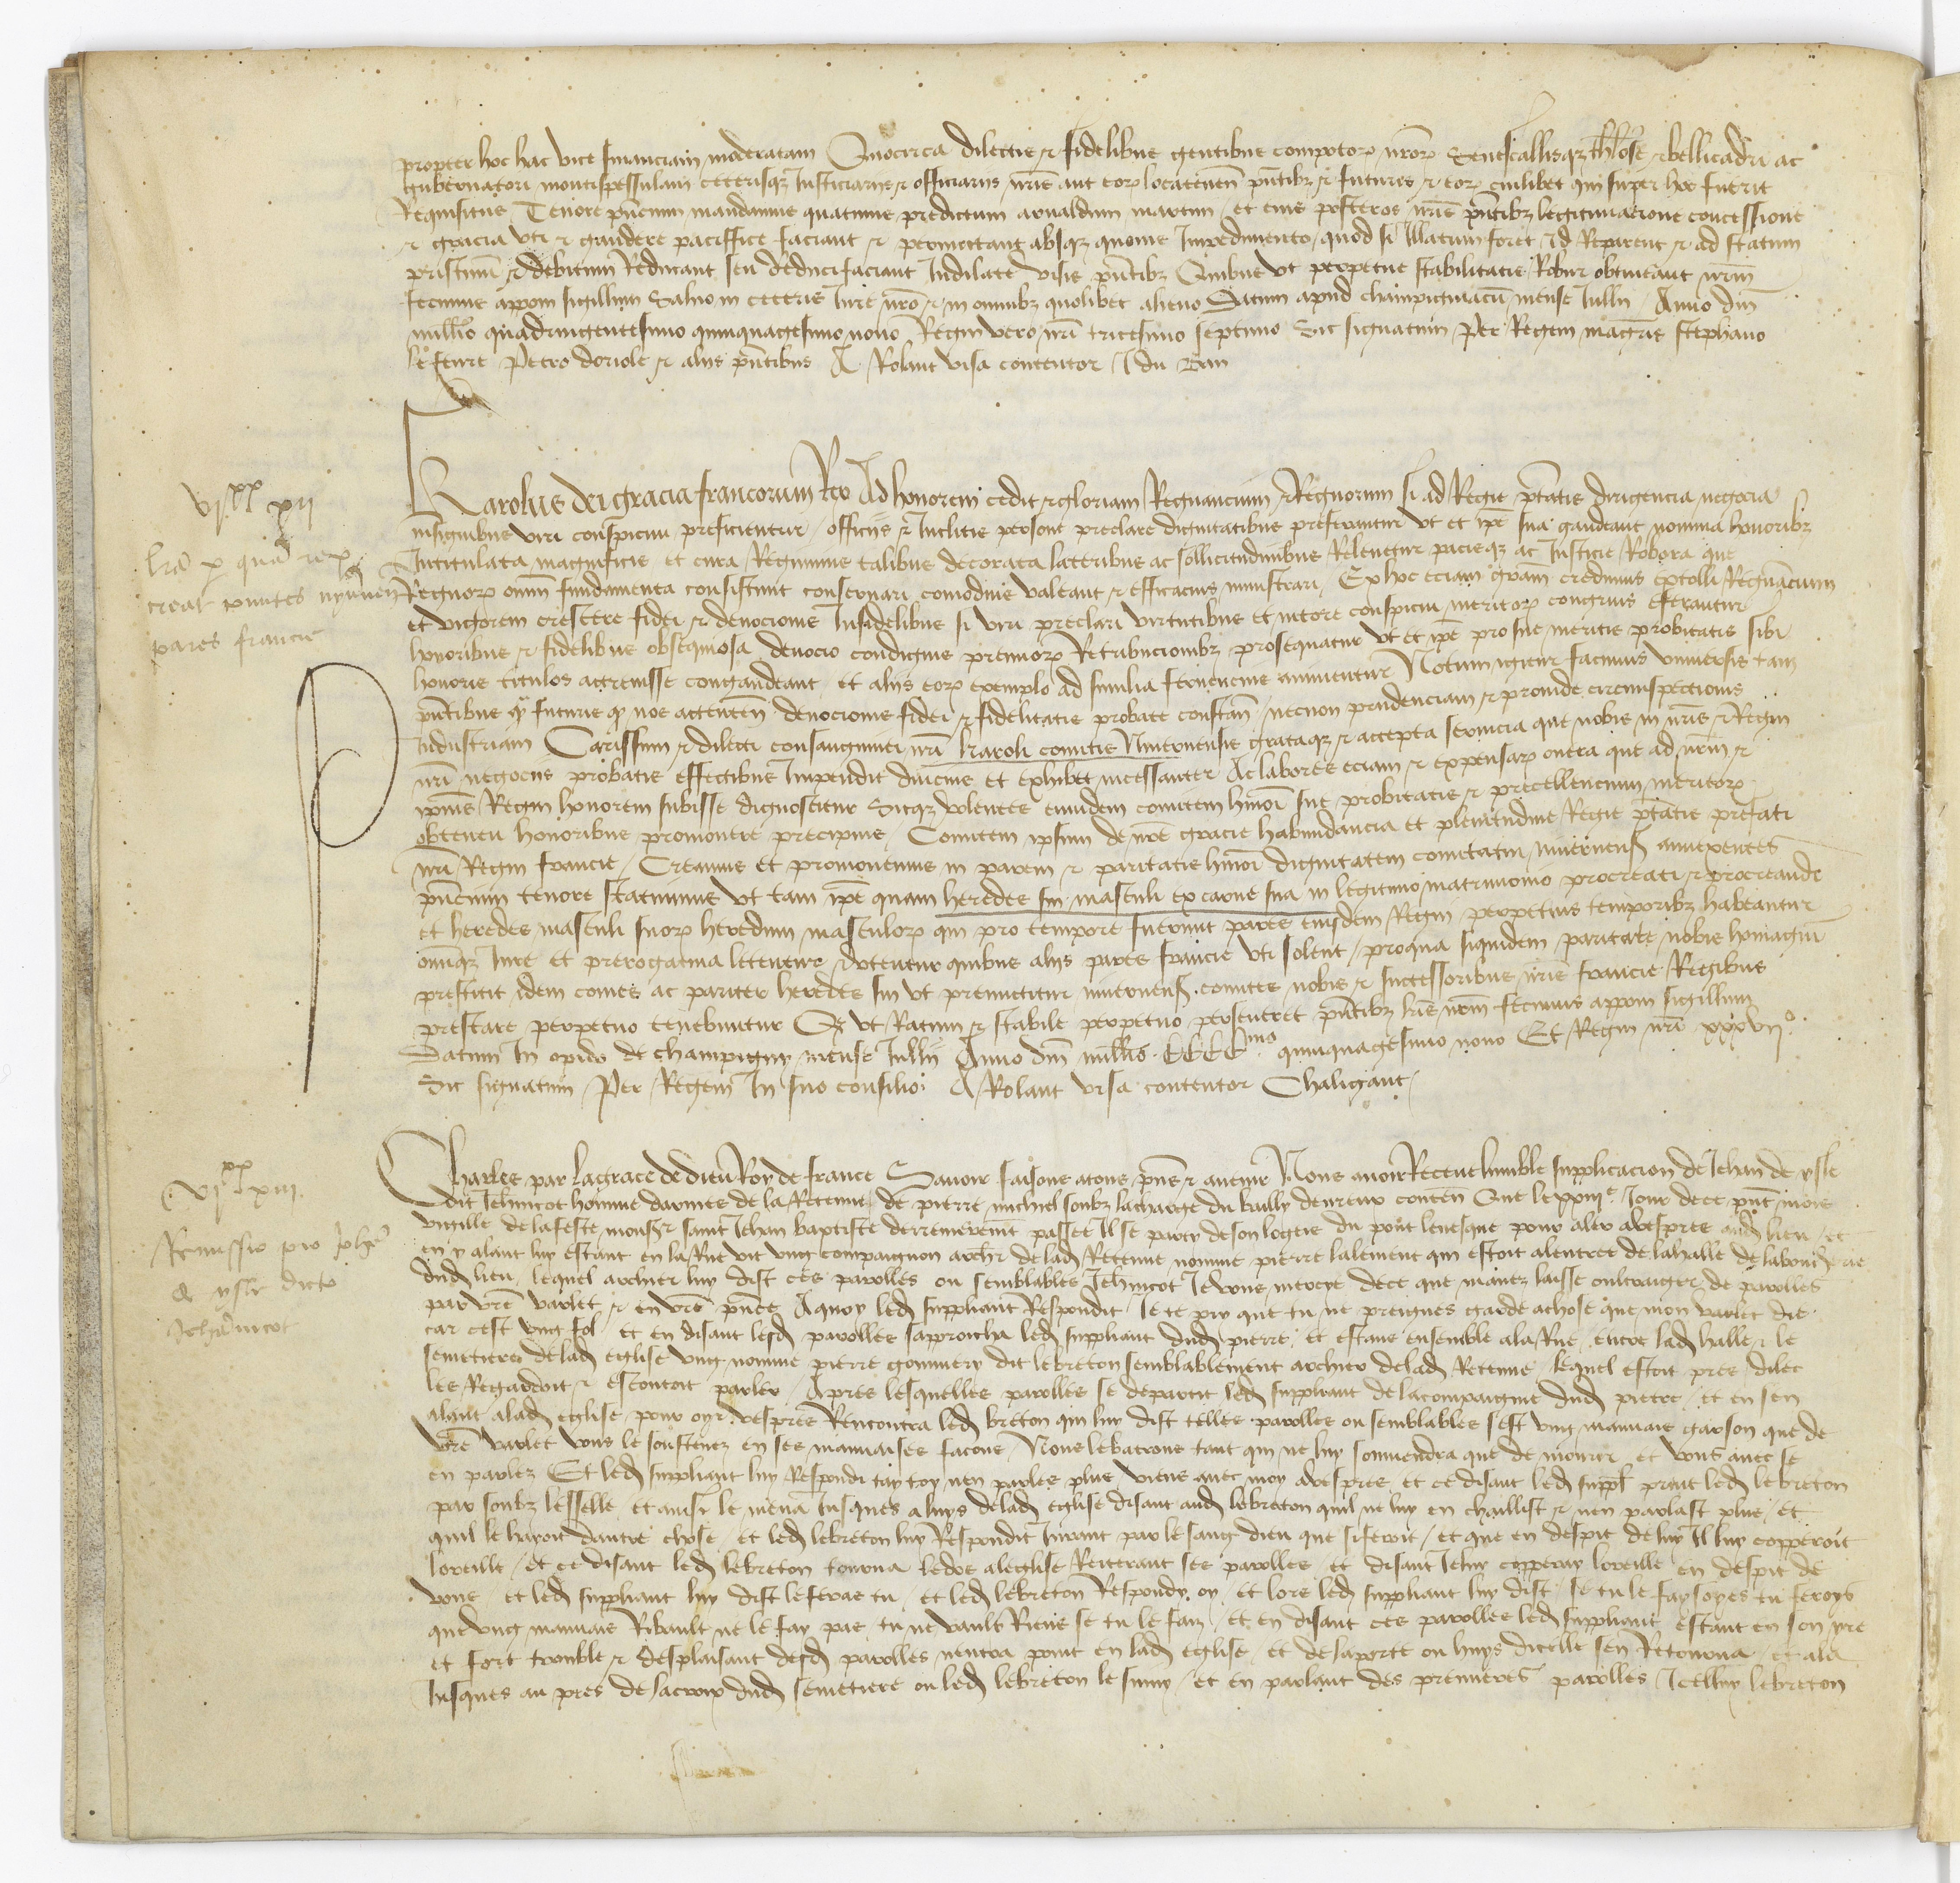 propter hoc hac vice financiam moderatam Quocirca dilectis et fidelibus gentibus compotorum nrorum Senescallisqz Tholose et bellicadri ac
gubernatori montispessulani ceterisqz Justiciariis et officiariis nris aut eorum locatenen pntibz et futuris et eorum cuilibet qui super hoc fuerit
Requisitus Tenore pncium mandamus quatinus predictum arnaldum martin et eius posteros nris pntibz legitimacione concessione
et gracia uti et gaudere paciffice faciant et permittant absqz quouis Impedimento quod si Illatum foret Id Reparent et ad statum
pristinum et debitum Reducant seu Reduci faciant Indilate visis pntibz Quibus ut perpetue stabilitatis Robur obtineant nrm
fecimus apponi sigillum Saluo in ceteris Jure nro et in omnibz quolibet alieno Datum apud champigniacum mense Jullii Anno dni
millio quadringentesimo quinquagesimo nono Regni vero nri tricesimo septimo Sic signatum Per Regem magistris stephano
le feure Petro doriole et aliis pntibus A Rolant visa contentor J du ban
VIxx XII
lra per quam rex
creat comites nyvern
pares francie
Karolus dei gracia francorum Rex Ad honorem cedit et gloriam Regnancium et Regnorum si ad Regie ptatis dirigencia negocia
insignibus viri conspicui preficiantur officiis et Inclitis persone preclare dignitatibus preferantur ut et ipe sua gaudeant nomina honoribz
Intitulata magnificis et cura Regiminis talibus decorata lateribus ac sollicitudinibus Releuetur pacisqz ac Justicie Robora que
Regnorum omni fundamenta consistunt conseruari comodius valeant et efficacius ministrari Ex hoc eciam gram credimus extolli Regnancium
et vigorem crescere fidei et deuocionis Infidelibus si viri preclari virtutibus et nitore conspicui meritorum congruis efferantur
honoribus et fidelibus obsequiosa deuocio condignis premiorum Retribucionibz prosequatur ut et ipe pro suis meritis probitatis sibi
honoris titulos accreuisse congaudeant et aliis eorum exemplo ad similia feruencius animentur Notum igitur facimus vniuersis tam
pntibus qz futuris qz nos attenten deuocionis fidei et fidelitatis probate constan necnon prudenciam et prouide circumspectionis
Industriam Carissimi et dilecti consanguinei nri karoli comitis Niuernensis grataqz et accepta seruicia que nobis in nris et Regni
nri negociis probatis effectibus Impendit diucius et exhibet incessanter Ac labores eciam et expensarum onera que ad nrm et
ipius Regni honorem subisse dignoscitur Sicqz volentes eiusdem comitem hmoi sue probitatis et precellencium meritorum
obtentu honoribus promouere precipuis Comitem ipsum de nre gracie habundancia et plenitudine Regie ptatis prefati
nri Regni francie Creamus et promouemus in parem et paritatis hmoi dignitatem comitatui niuernens annexentes
pncium tenore statuimus ut tam ipe quam heredes sui masculi ex carne sua in legitimo matrimonio procreati et procreandi
et heredes masculi suorum heredum masculorum qui pro tempore fuerint pares eiusdem Regni perpetuis temporibz habeantur
omniqz Jure et prerogatiua letentur et utentur quibus aliis pares francie uti solent pro qua siquidem paritate nobis homagium
prestitit idem comes ac pariter heredes sui ut premittitur niuernens comites nobis et successoribus nris francie Regibus
prestare perpetuo tenebuntur Qz ut Ratum et stabile perpetuo perseueret pntibz lris nrm fecimus apponi sigillum
Datum In opido de champigny mense Jullii Anno dni millio CCCCmo quinquagesimo nono Et Regni nri xxxvijo
Sic signatum Per Regem In suo consilio A Rolant visa contentor Chaligaut
VIxx XIII
Remissio pro Johe
de ysle dicto
Jehannicot
Charles par la grace de dieu Roy de france Sauoir faisons atous pns et auenir Nous auoir Receue lumble supplicacion de Jehan de ysle
dit Jehnicot homme darmes de la Retenue de pierre michiel soubz la charge du bailly deureux conten Que le xxiije Jour de ce pnt mois
vigille de la feste monsr saint Jehan baptiste derrenierement passee Il se party de son logeis du pont leuesque pour aler a vespres aud lieu et
en y alant luy estant en la Rue vit vng compaignon archier de lad Retenue nomme pierre lalement qui estoit a lentree de la halle de la boucherie
dud lieu lequel archier luy dist ces parolles ou semblables Jehnicot Je vous mercye de ce que mauez laisse oultraiger de parolles
par vre varlet et en vre pnce Aquoy led suppliant Respondit Je te pry que tu ne preignes garde a chose que mon varlet die
car cest vng fol et en disant lesd parolles sapproucha led suppliant dud pierre et estans ensemble a la Rue entre lad halle et le
semetiere de lad eglise vng nomme pierre gommery dit le breton semblablement archier de lad Retenue lequel estoit pres dilec
les Regardoit et escoutoit parler Apres lesquelles parolles se departit led suppliant de la compaignie dud pierre et en sen
alant a lad eglise pour oyr vespres Rencontra led breton qui luy dist telles parolles ou semblables cest vng mauuais garson que de
vre varlet vous le soustenez en ses mauuaises facons Nous le batrons tant qui ne luy souuiendra que de mourir et vous auec se
en parlez Et led suppliant luy Respondi tay toy nen parles plus viens auec moy a vespres et ce disant led suppl print led le breton
par soubz lesselle et ainsi le mena Jusques a luys de lad eglise disant aud le breton quil ne luy en chaillist et nen parlast plus et
quil le hayoit dautre chose et led le breton luy Respondit Jurant par le sang dieu que si feroit et que en despit de luy Il luy copperoit
loreille et ce disant led le breton tourna ledos a leglise Reiterant ses parolles et disant Je luy copperay loreille en despit de
vous et led suppliant luy dist le feras tu et led le breton Respondy oy et lors led suppliant luy dist se tu le faysoyes tu feroys
que vng mauuais Ribault ne le fay pas tu ne vauls Riens se tu le faiz et en disant ces parolles led suppliant estant en son yre
et fort trouble et desplaisant desd parolles nentra point en lad eglise et de la porte ou huys dicelle sen Retourna et ala
Jusques au pres de la croix dud semetiere ou led le breton le suiuy et en parlant des premieres parolles Icelluy le breton